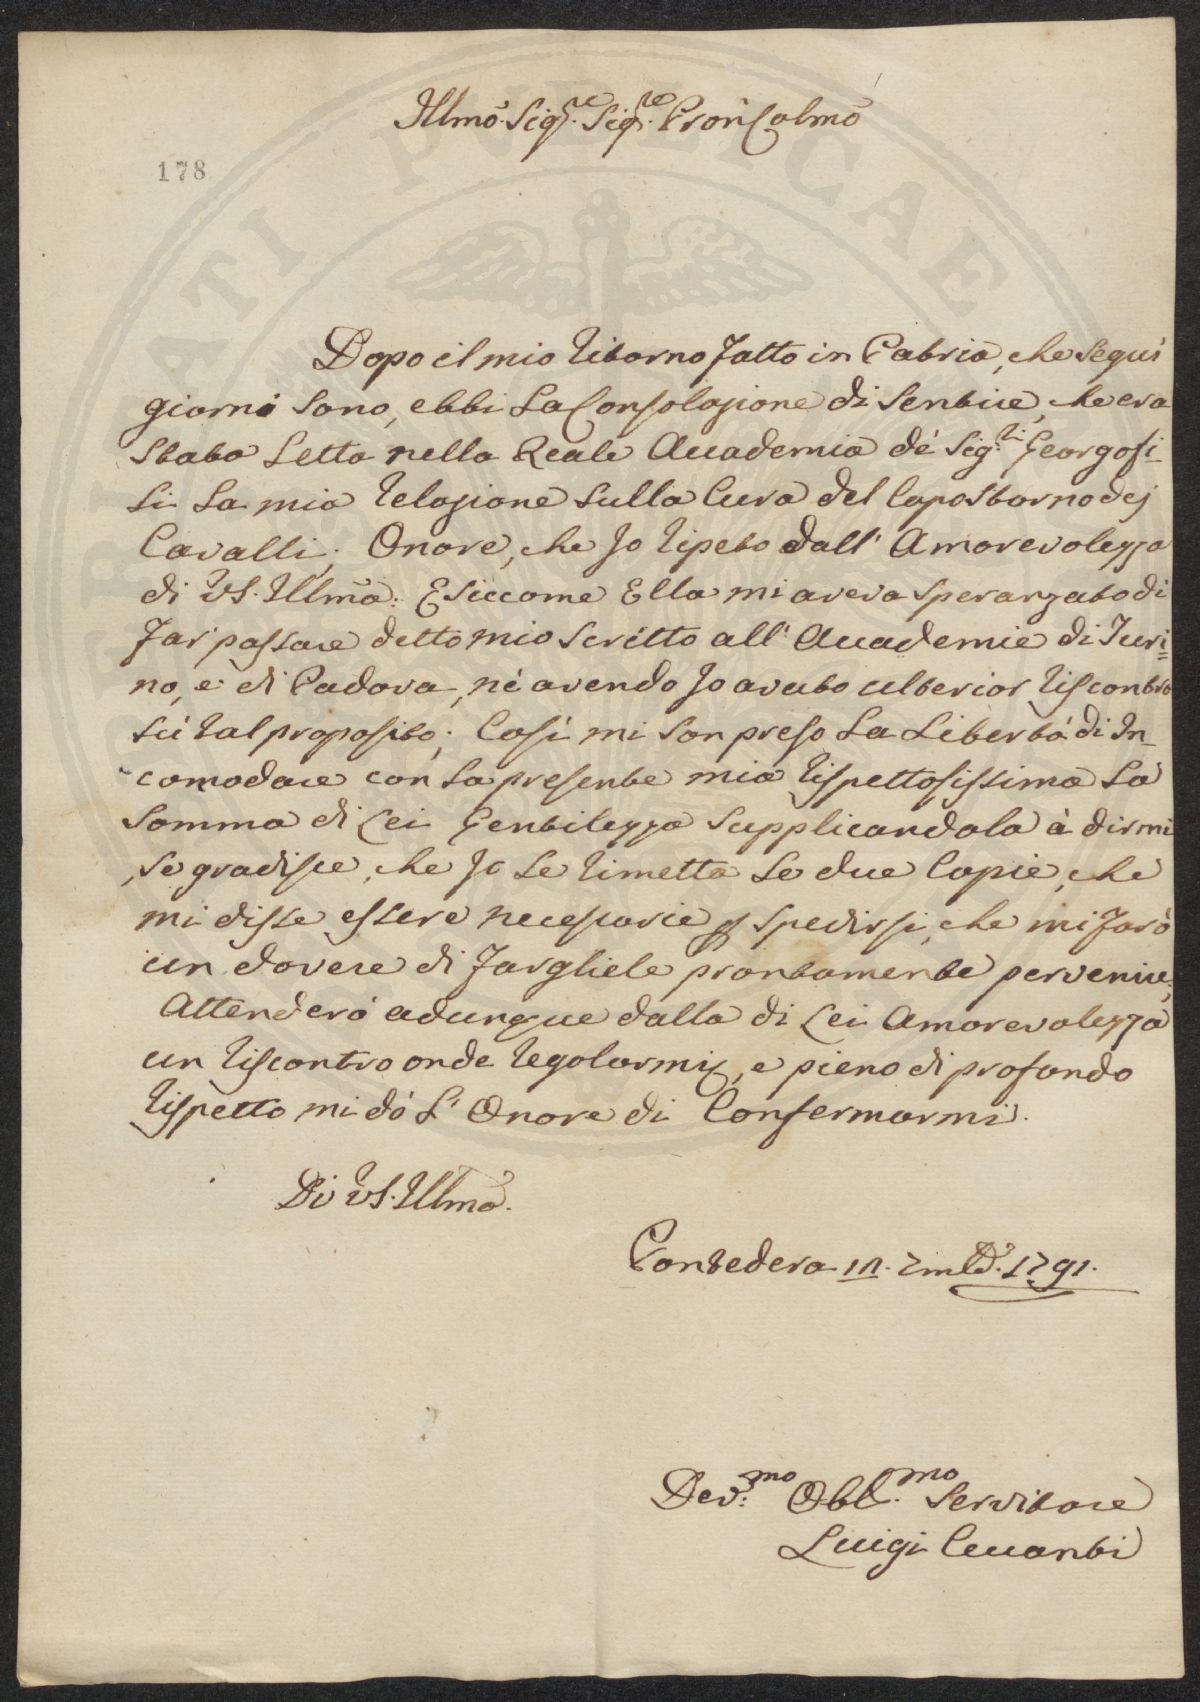 Illmō. Sigre. Sigre. Pron Colmō
178
Dopo il mio ritorno fatto in Patria, che seguì
giorni sono, ebbi la Consolazione di sentire, che era
stata letta nella Reale Accademia de' Sigri. Georgofi-
li la mia relazione sulla Cura del Capostorno dej
Cavalli; Onore, che Jo ripeto dall' Amorevolezza
di VS. Illma: E siccome Ella mi aveva speranzato di
far passare detto mio scritto all' Accademie di Turi=
no, e di Padova, nè avendo Jo avuto ulterior riscontro
sù tal proposito; Così mi son preso la Libertà di In-
comodare con la presente mia rispettosissima la
somma di Lei Gentilezza supplicandola à dirmi
se gradisce, che Jo le rimetta le due Copie, che
mi disse essere necessarie p spedirsi, che mi farò
un dovere di fargliele prontamente pervenire;
Attenderò adunque dalla di Lei Amorevolezza
un riscontro onde regolarmi, e pieno di profondo
rispetto mi dò L' Onore di Confermarmi.
Di VS. Illma.
Pontedera 1791.
Dev:mo Obbl.mo Servitore
Luigi